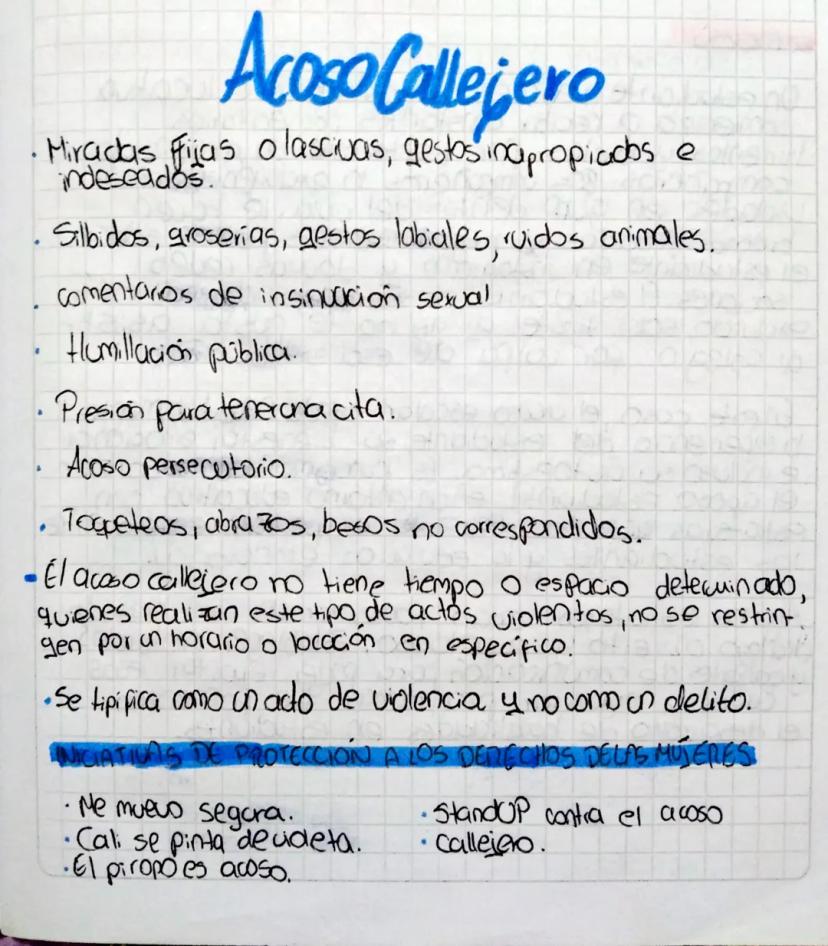 Acoso Callejero
· Miradas fijas o lascivas, gestos inapropiados e
indeseados.
· Silbidos, groserías, gestos labiales, ruidos animales.
· comentarios de insinuación sexual
· Humillación pública.
· Presión para tener una cita.
· Acoso persecutorio.
· Toqueteos, abrazos, besos no correspondidos.
- El acoso callejero no tiene tiempo o espacio determinado,
quienes realizan este tipo de actos violentos, no se restrin-
gen por un horario o locación en específico.
· Se tipifica como un acto de violencia y no como un delito.
INICIATIVAS DE PROTECCIÓN A LOS DERECHOS DE LAS MUJERES
· Me muevo segura.
· Cali se pinta de violeta.
· El piropo es acoso.
· StandUP contra el acoso
· callejero.